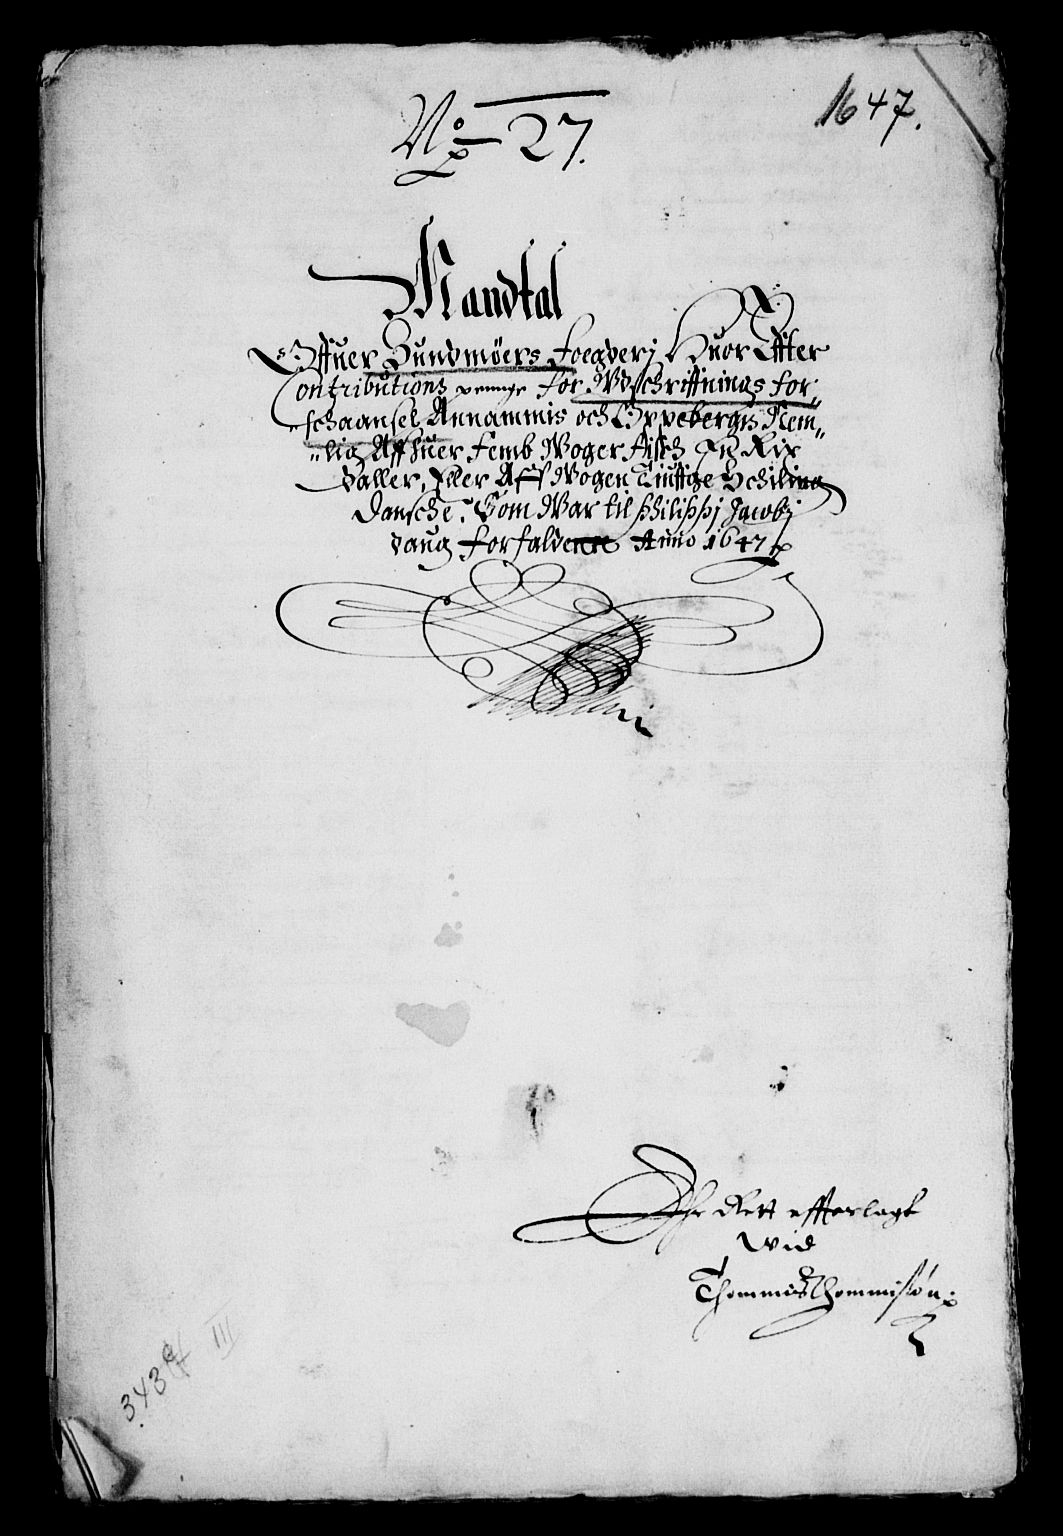 1647.
No 27.
Mandtal
Offuer Sundmöers foegderj Huor Effter
Contributions penninge for Wdschriffnings for„
„schaansel Annammis och Oppebergis Nem„
„lig Aff huer femb Woger fisch En Rix
daller, Eller Aff Wogen Tiuffge Schiling
Dansche. Som War til Philippj Jacobj
daug forfaldenn Anno 1647
Er Rett efferlagt
wid
Thommis Thommisßøn.
343
III